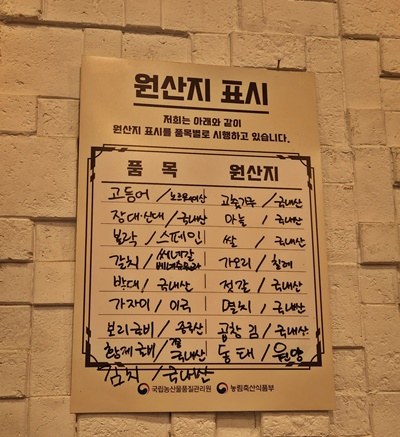 원산지 표시
저희는 아래와 같이
원산지 표시를 품목별로 시행하고 있습니다.
품 목 원산지
고등어 / 노르웨이산 고춧가루 / 국내산
장대·산대 / 국내산 마늘 / 국내산
볼락 / 스페인 쌀 / 국내산
갈치 / 쎄네갈 가오리 / 칠레
반대 / 국내산 젓갈 / 국내산
가자미 / 미국 멸치 / 국내산
보리굴비 / 중국산 곱창 김 / 국내산
황제굴비 / 국내산 동태 / 원양
김치 / 국내산
국립농산물품질관리원 농림축산식품부